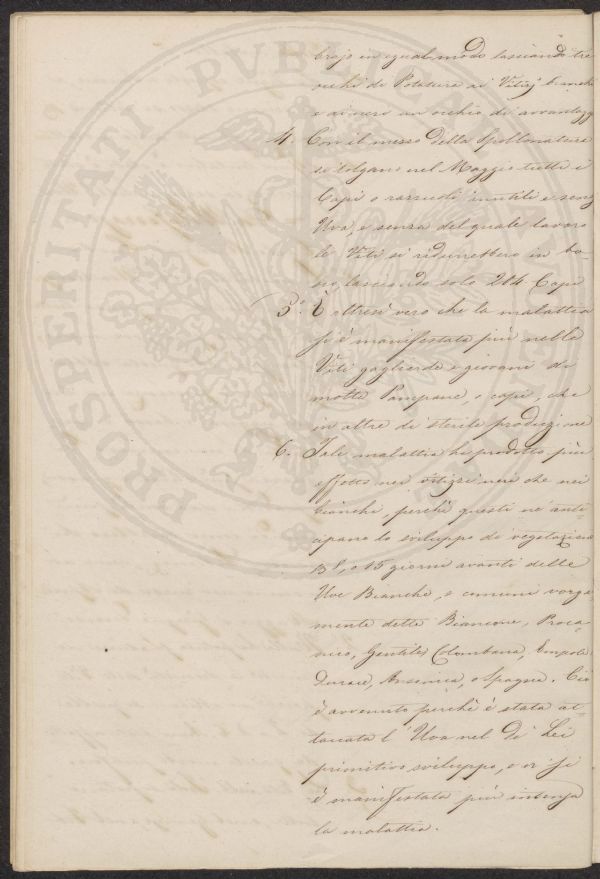 brajo in egual modo lasciando tre
occhi di Potatura ai Vitizj bianchi
e ai neri un occhio di avvantaggi
4. Con il mezzo della Spollonatura
si tolgano nel Maggio tutti i
Capi o razzuoli inutili e senz
Uva, e senza del quale lavoro
le Viti si ridurrebbero in bo-
sco, lasciando solo 2 o 4 Capi
5.° È altresì vero che la malattia
si è manifestata più nelle
Viti gagliarde e giovani di
molte Pampane, o capi, che
in altre di sterile produzione
6. Tale malattia ha prodotto più
effetto nei vitizzi neri che nei
bianchi, perchè questi ne anti-
cipano lo sviluppo di vegetazione
o 15 giorni avanti delle
Uve Bianche, e comuni volga-
mente dette Biancone, Proca-
nico, Gentile, Colombana, Empola
Durace, Ansonica, o Spagna. Ciò
è avvenuto perchè è stata at-
taccata l'Uva nel di Lei
primitivo sviluppo, e or si
è manifestata più intensa
la malattia.
PROSPERITATI PVBLICAE